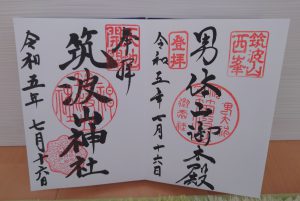 筑波山
西峯
登拝
男体山御本殿
令和五年七月十六日
奉拝
筑波山神社
令和五年七月十六日